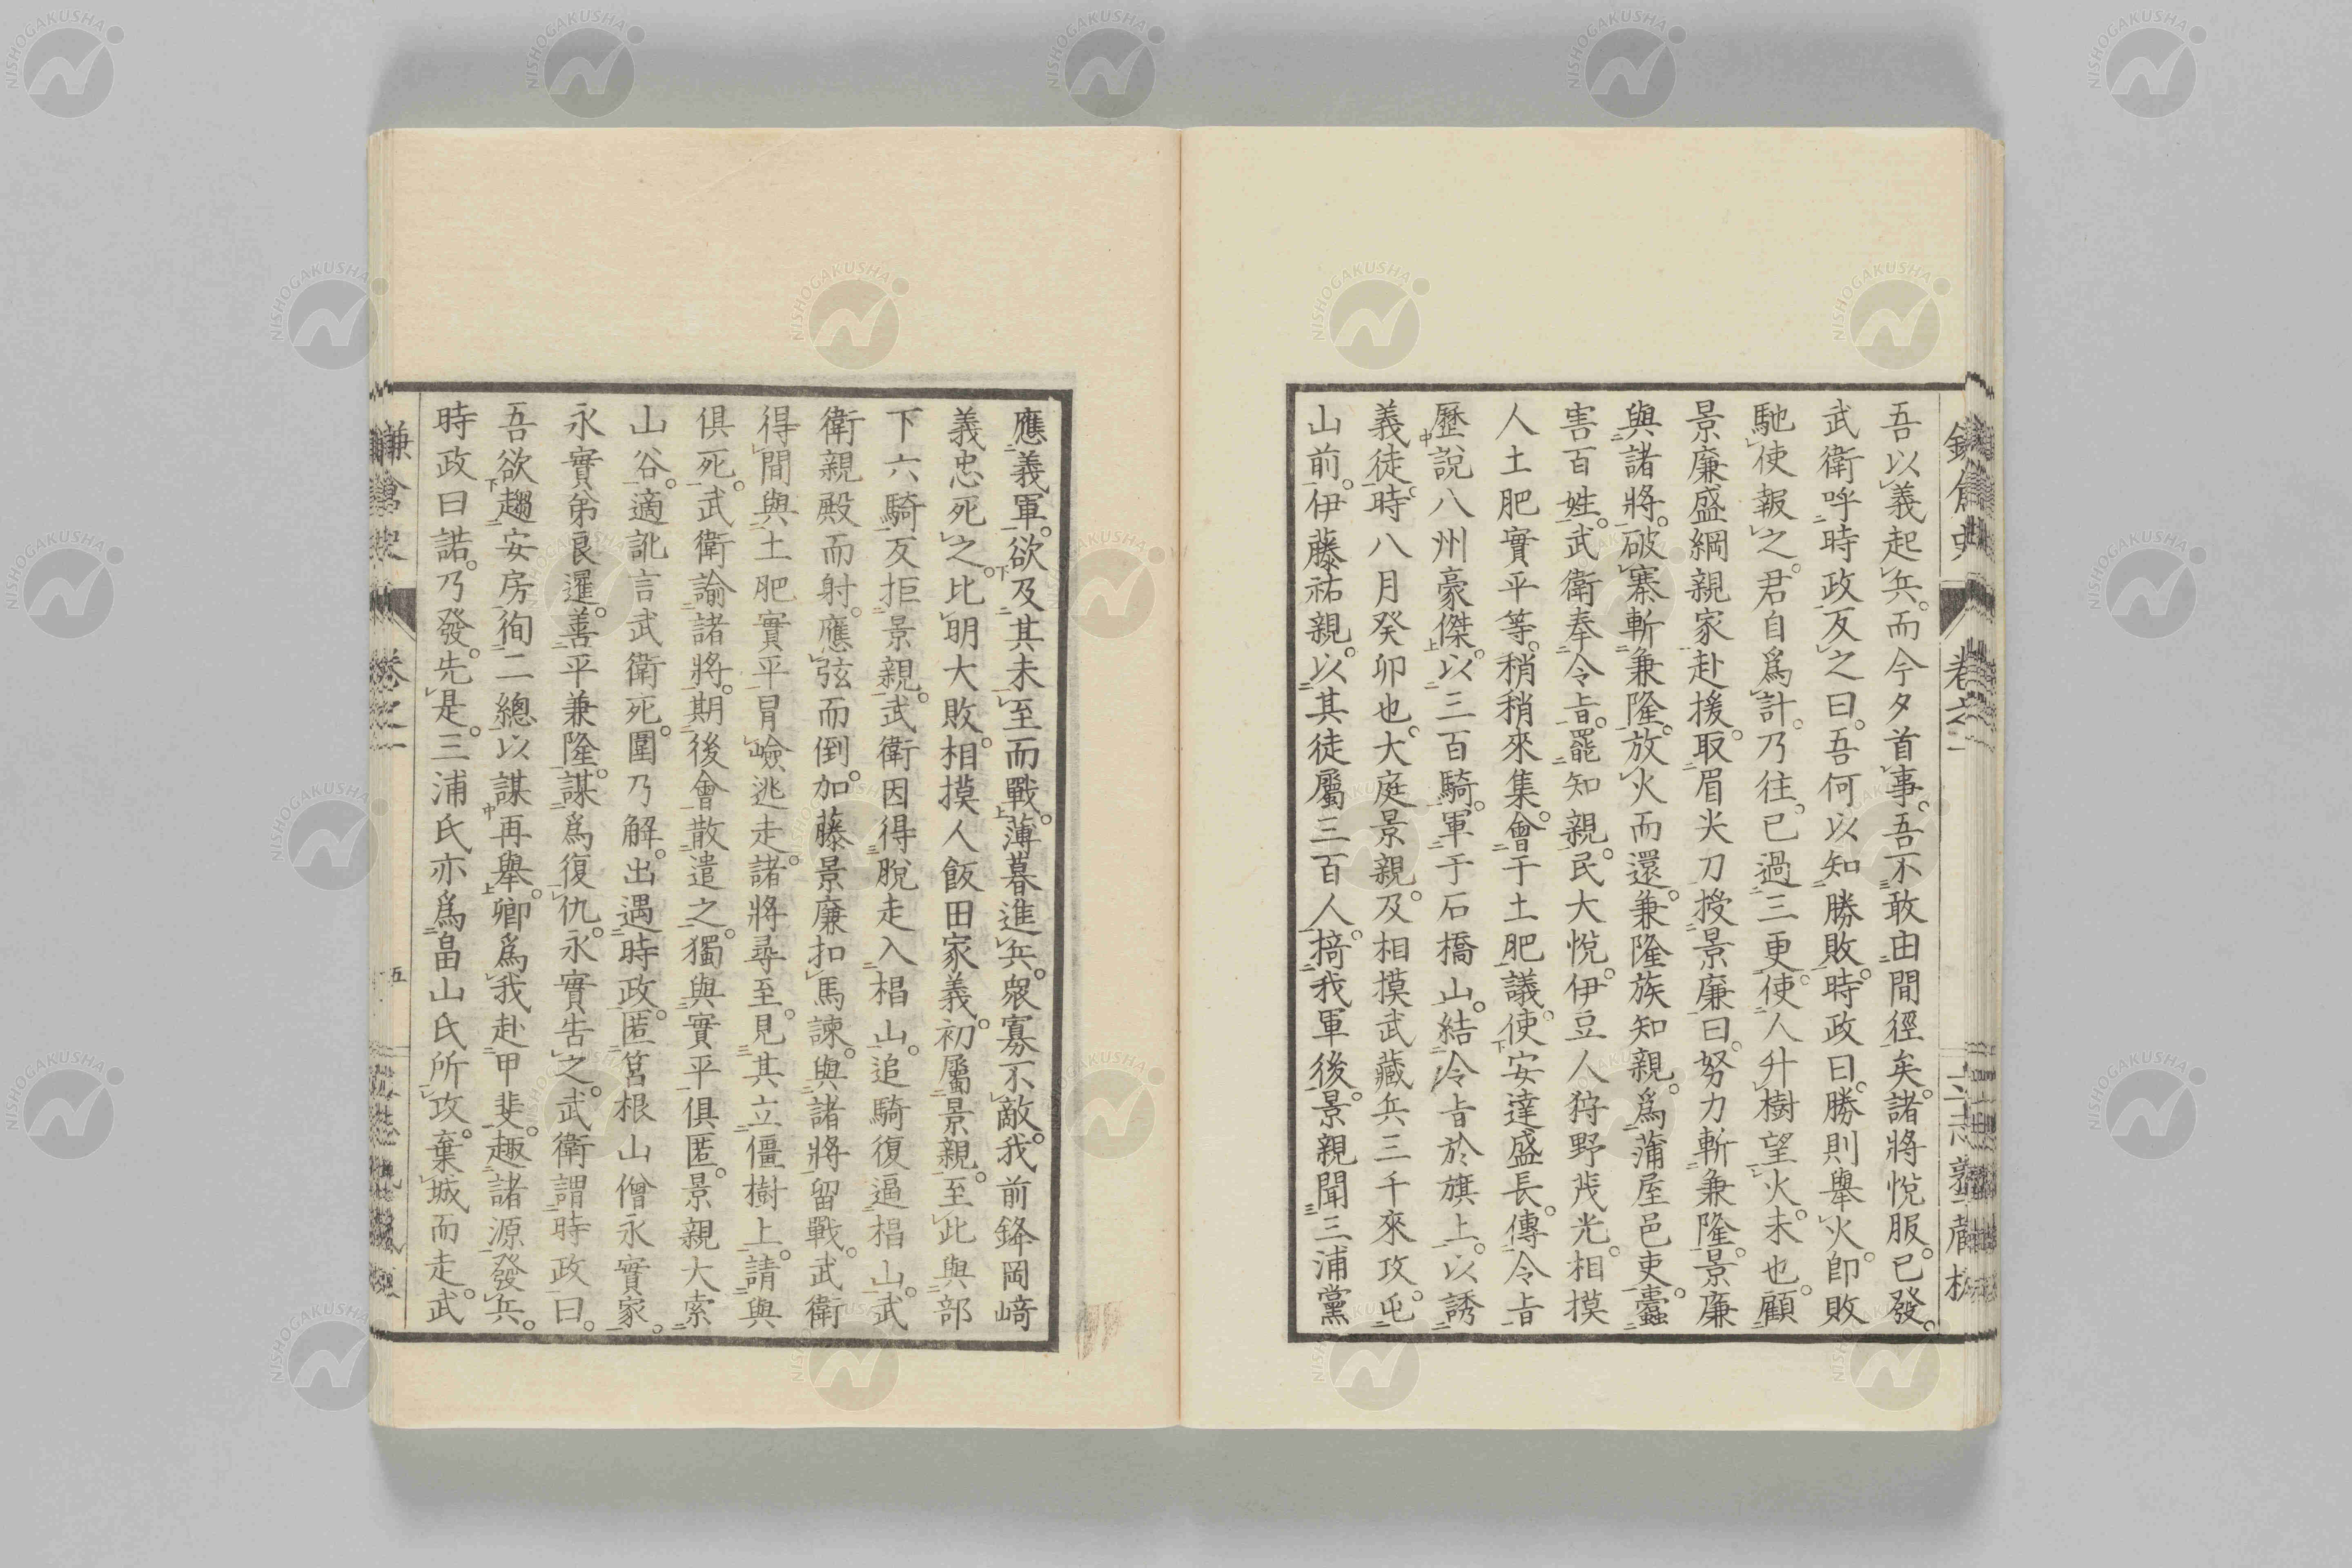 吾以義起兵。而今夕首事。吾不敢由間徑矣。諸將悅服。已發。
武衛呼時政反之曰。吾何以知勝敗。時政曰。勝則舉火。卽敗
馳使報之。君自爲計。乃往。已過三更。使人升樹望火。未也。顧
景廉盛綱親家赴援。取眉尖刀授景廉曰。努力斬兼隆。景廉
與諸將。破寨斬兼隆。放火而還。兼隆族知親。爲蒲屋邑吏。蠹
害百姓。武衛奉令旨。罷知親。民大悅。伊豆人狩野茂光。相摸
人土肥實平等。稍稍來集。會于土肥議。使安達盛長。傳令旨
歷說八州豪傑。以三百騎。軍于石橋山。結令旨於旗上。以誘
義徒。時八月癸卯也。大庭景親。及相摸武藏兵三千來攻。屯
山前。伊藤祐親。以其徒屬三百人。掎我軍後。景親聞三浦黨
應義軍。欲及其未至而戰。薄暮進兵。衆寡不敵。我前鋒岡﨑
義忠死之。比明大敗。相摸人飯田家義。初屬景親。至此與部
下六騎反拒景親。武衛因得脫走入椙山。追騎復逼椙山。武
衛親殿而射。應弦而倒。加藤景廉扣馬諫。與諸將留戰。武衛
得間與土肥實平冒嶮逃走。諸將尋至。見其立僵樹上。請與
俱死。武衛諭諸將。期後會散遣之。獨與實平俱匿。景親大索
山谷。適訛言武衛死。圍乃解。出遇時政。匿筥根山僧永實家。
永實弟良暹。善平兼隆。謀爲復仇。永實告之。武衛謂時政曰。
吾欲趨安房。徇二總。以謀再舉。卿爲我赴甲斐。趣諸源發兵。
時政曰諾。乃發。先是。三浦氏亦爲畠山氏所攻。棄城而走。武
五